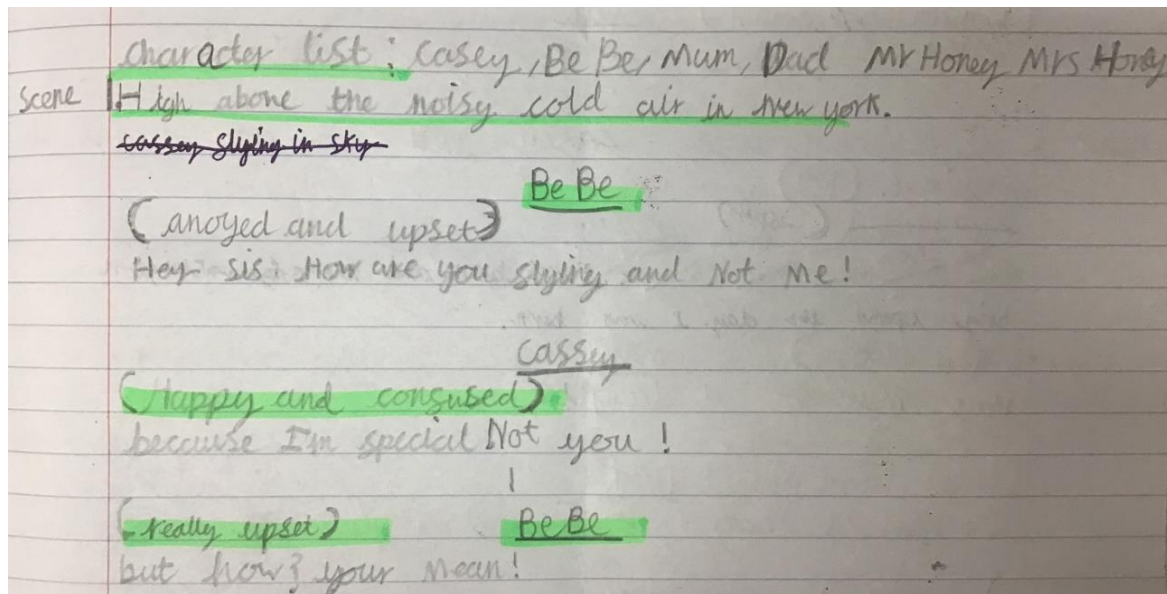 character list : Casey, Be Be, Mum, Dad Mr Honey Mrs Honey
scene 1. High above the noisy cold air in New york.
cassey slying in sky
Be Be
(anoyed and upset)
Hey sis. How are you slying and Not me!
cassey
(Happy and consused)
because I'm special Not you !
(really upset) BeBe
but how? your mean!